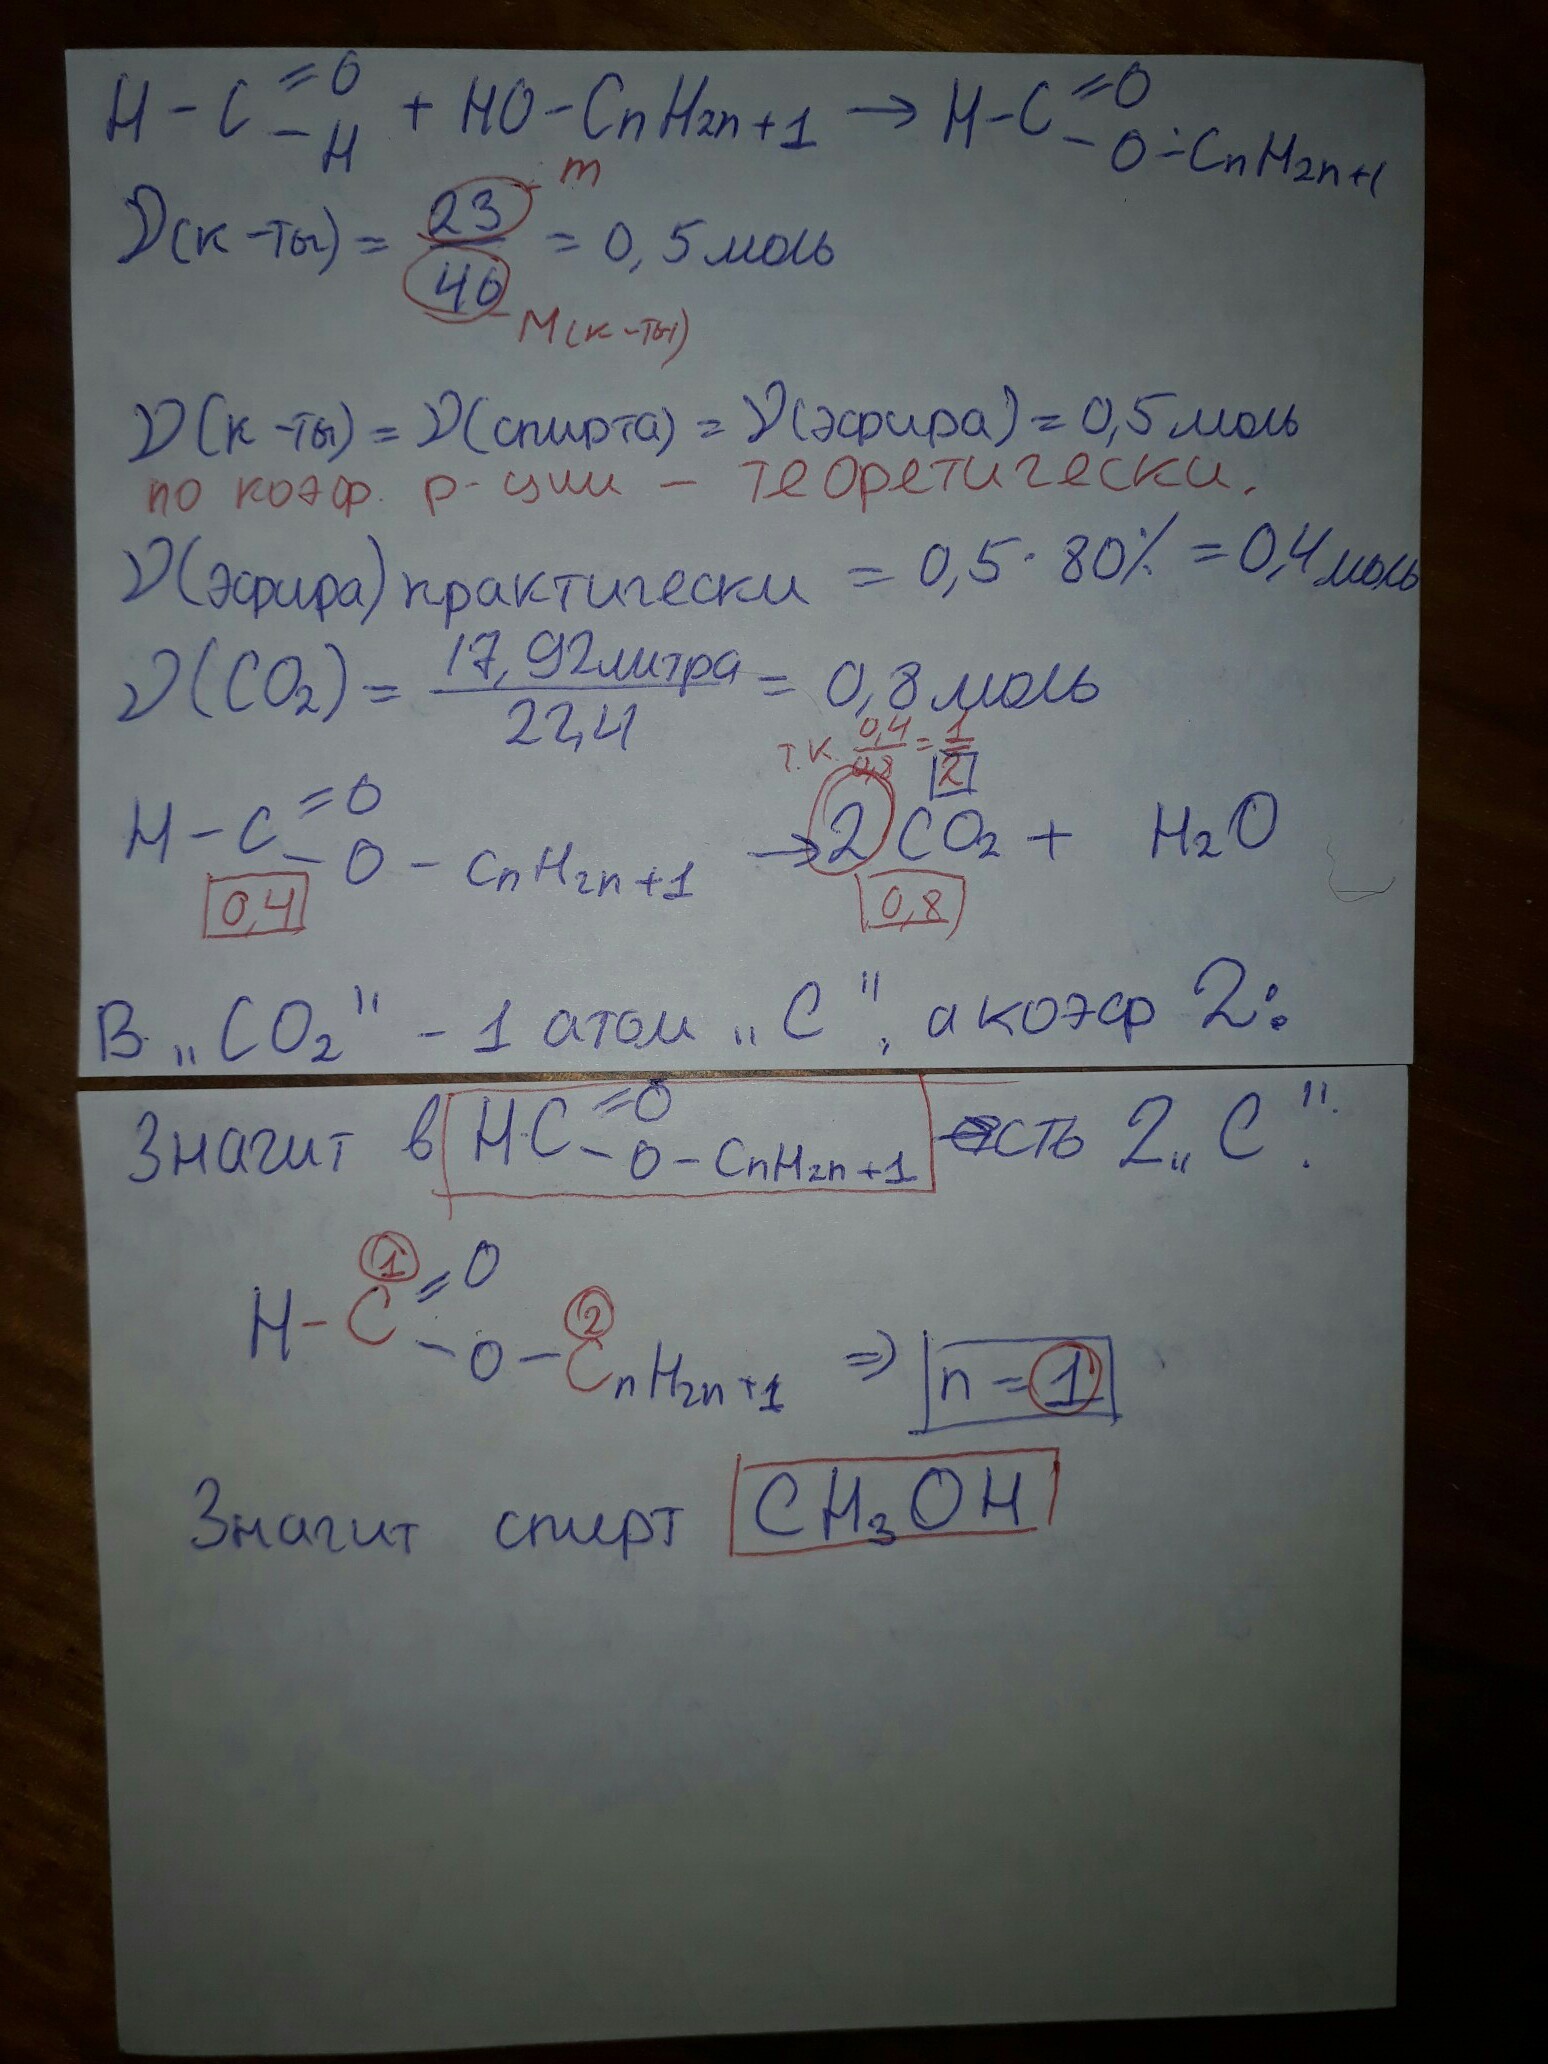 H - C =O -H + HO - CnH2n+1 → H-C =O -O-CnH2n+1
ν(к-ты) = 23/46 = 0,5 моль
m
M(к-ты)
ν(к-ты) = ν(спирта) = ν(эфира) = 0,5 моль
по коэф. р-ции - теоретически.
ν(эфира) практически = 0,5 · 80% = 0,4 моль
ν(CO2) = 17,92 литра/22,4 = 0,8 моль
т.к. 0,4/0,8 = 1/2
H - C =O -O - CnH2n+1 → 2 CO2 + H2O
0,4 0,8
В „CO2" - 1 атом „C", а коэф 2:
Значит в HC =O -O-CnH2n+1 есть 2 „C".
1 2
H - C =O -O - CnH2n+1 ⇒ n = 1
Значит спирт CH3OH